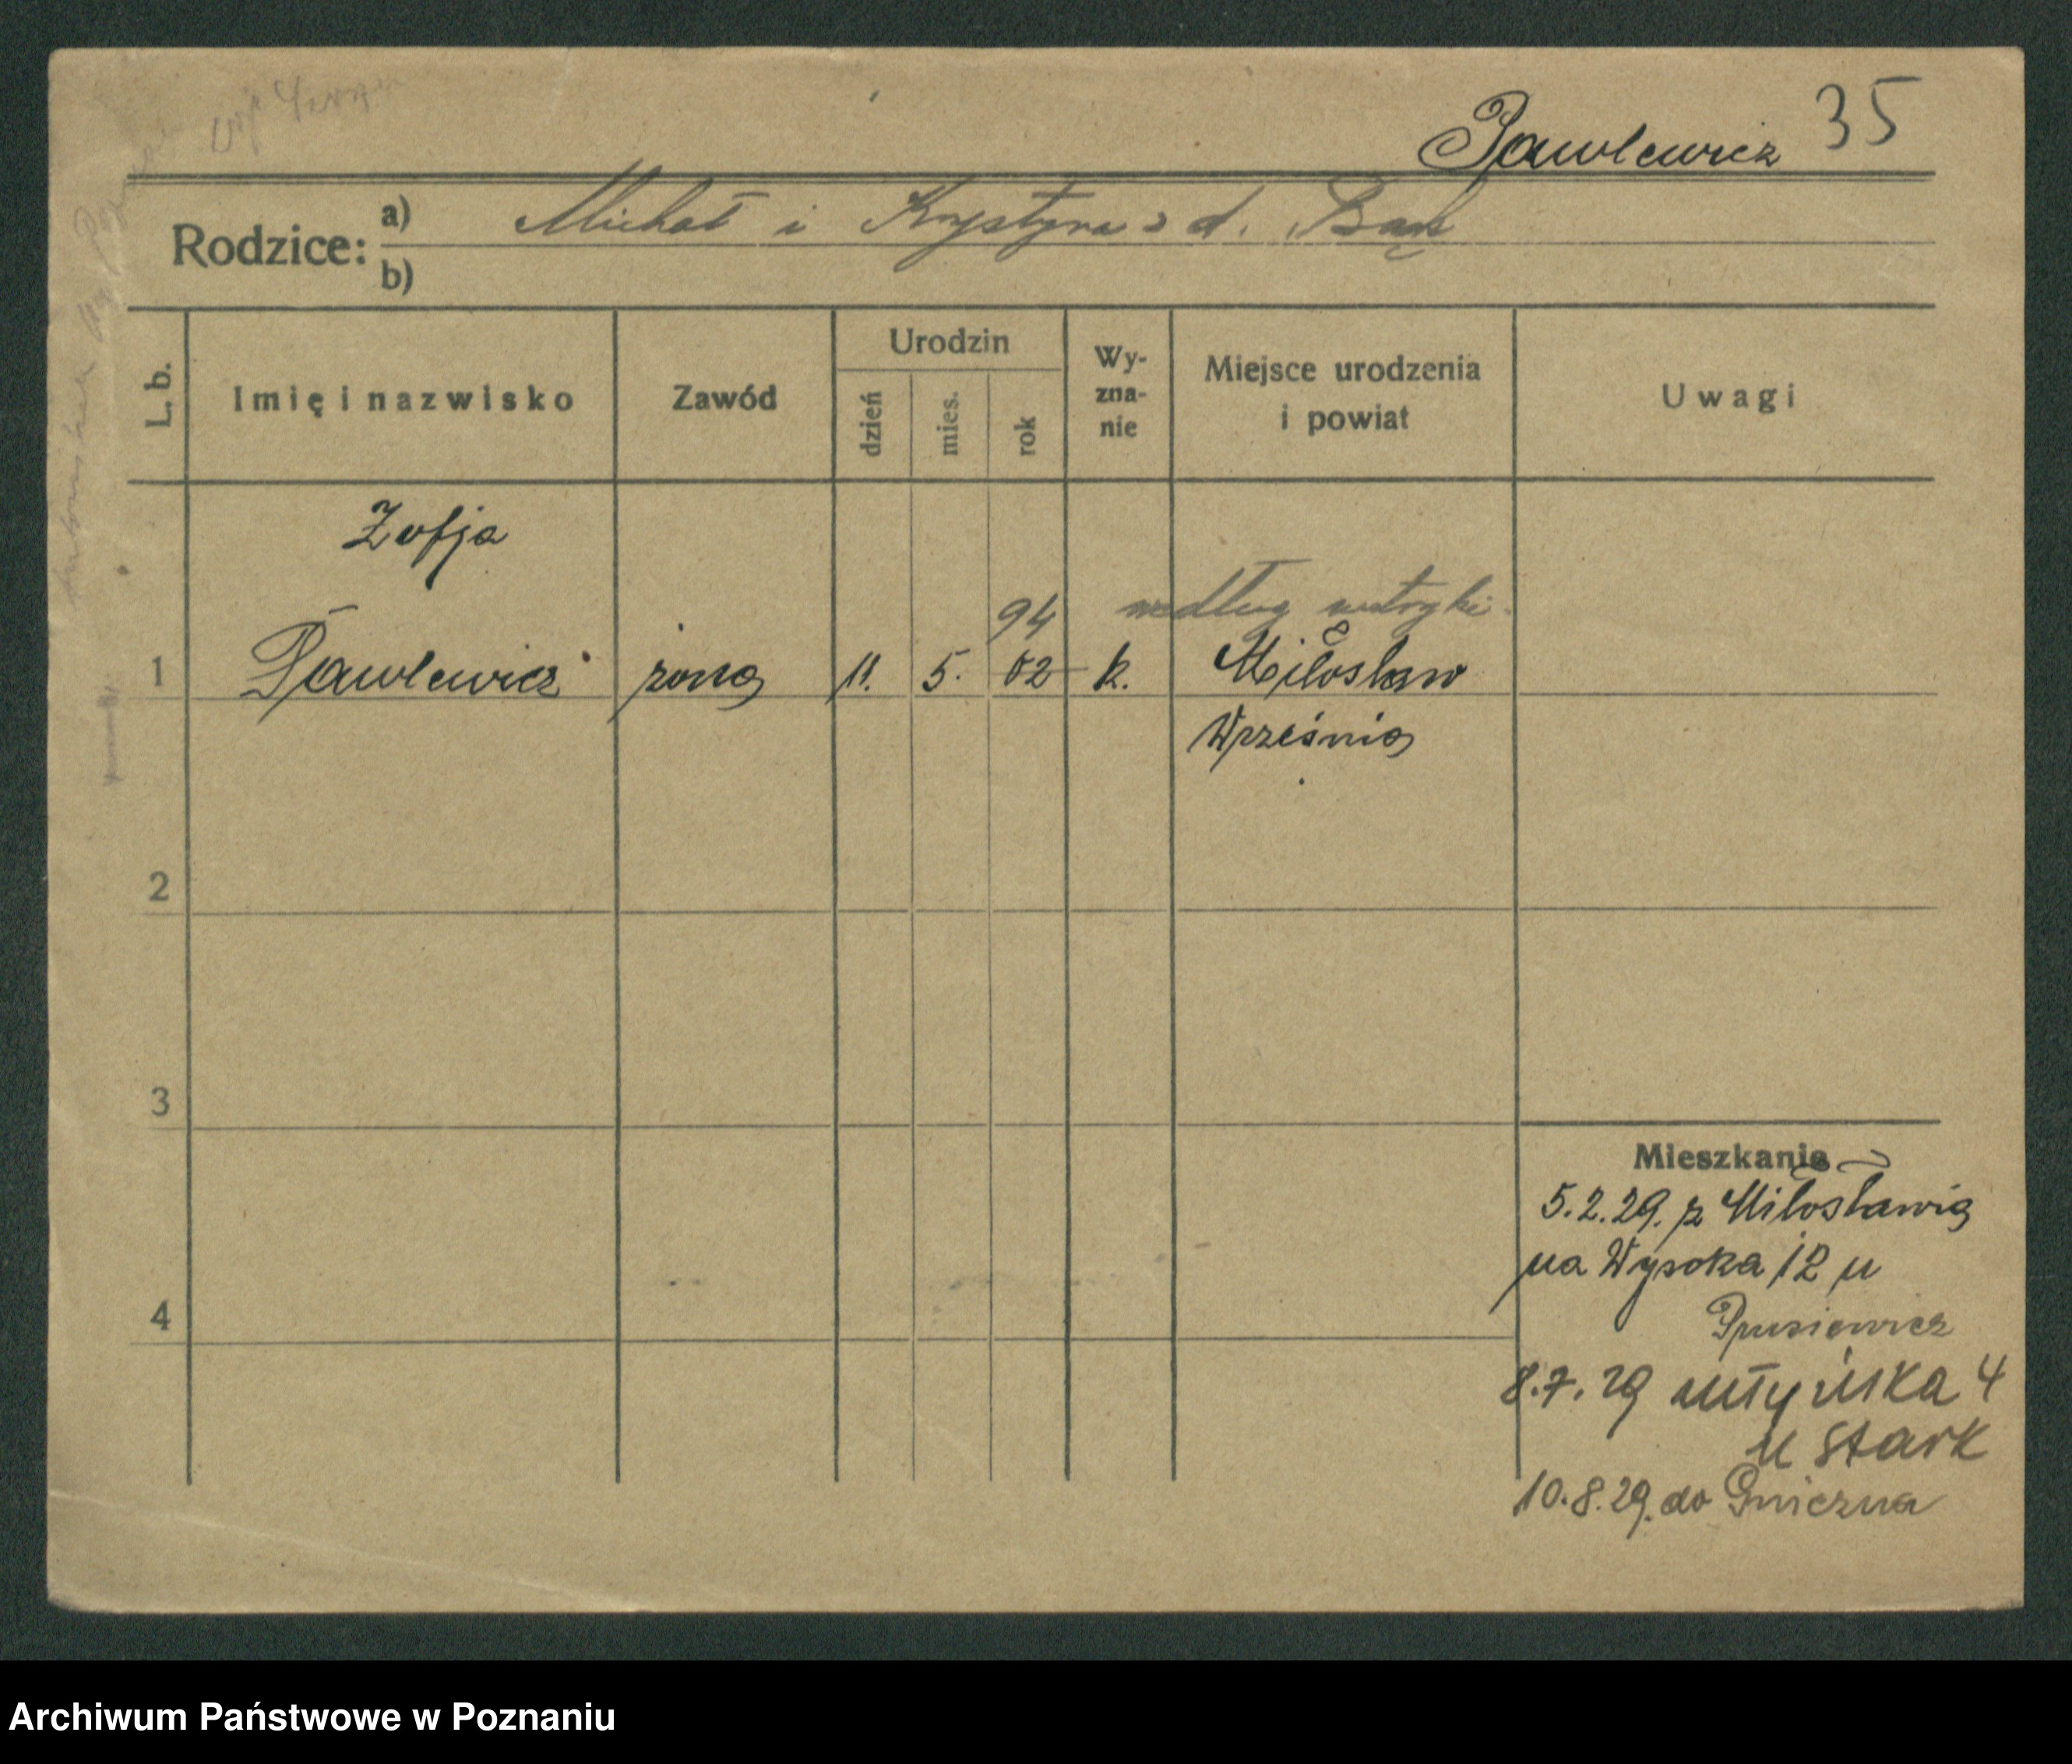 Pawlewicz 35
Rodzice: a) Michał i Krystyna z d. Bąk
b)
L. b. Imię i nazwisko Zawód Urodzin dzień mies. rok Wy-zna-nie Miejsce urodzenia i powiat Uwagi
Zofja
94 według metryki
1 Pawlewicz żona 11. 5. 02 k. Miłosław
Września
2
3
Mieszkanie
5.2.29. z Miłosławia
na Wysoka 12 u
4
Prusiewicz
8.7.29 Młyńska 4
u Stark
10.8.29. do Gniezna
Archiwum Państwowe w Poznaniu